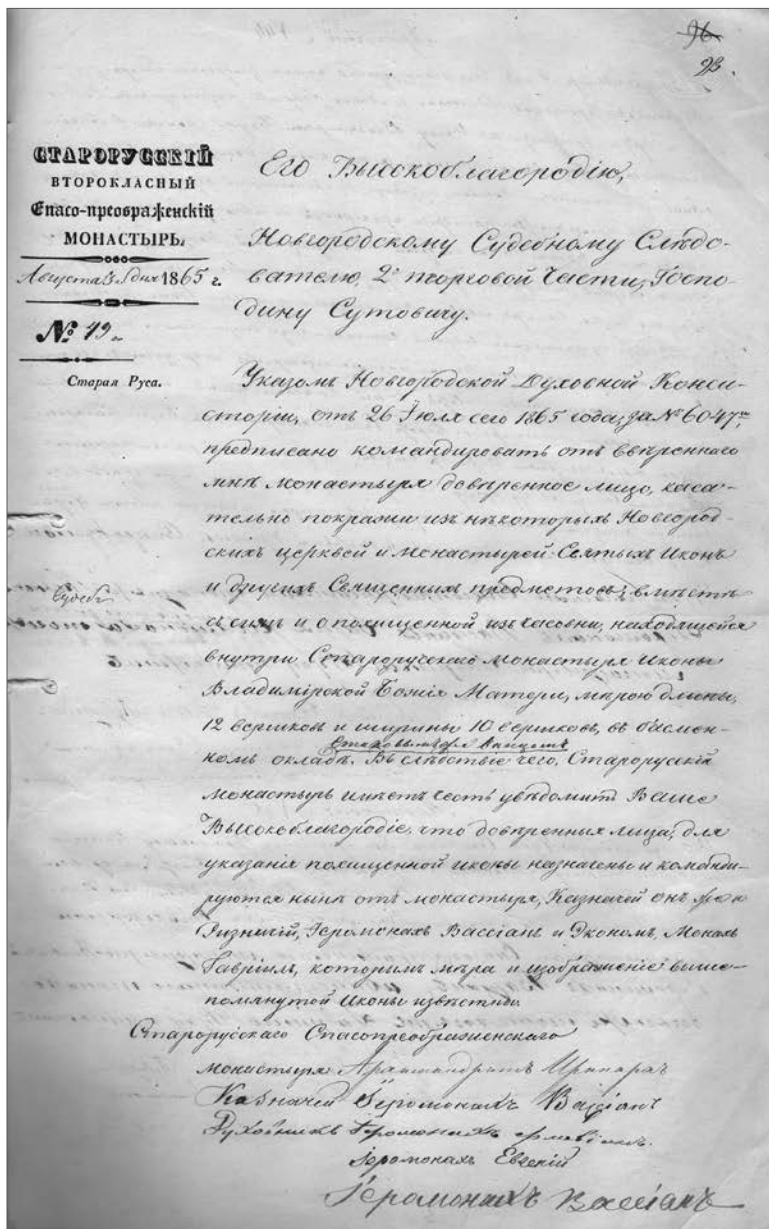 96
23.
СТАРОРУССКІЙ
ВТОРОКЛАСНЫЙ
Спасо-преображенскій
МОНАСТЫРЬ
Августа 3 дня 1865 г.
№ 49
Старая Руса.
Его Высокоблагородію,
Новгородскому Судебному Слѣдо-
вателю, 2й торговой Части, Госпо-
дину Сутовичу.
Указомъ Новгородской Духовной Конси-
сторіи, отъ 26 Іюля сего 1865 года, за № 6047м,
предписано командировать отъ ввѣреннаго
мнѣ монастыря довѣренное лицо, каса-
тельно покражи изъ нѣкоторыхъ Новгород-
скихъ церквей и монастырей Святыхъ Иконъ
и другихъ Священныхъ предметовъ, вмѣстѣ
съ симъ и о похищенной изъ часовни, находящейся
внутри Старорусскаго монастыря Иконы
Владимірской Божія Матери, мѣрою длины,
12 вершковъ и ширины 10 вершковъ, въ басмен-
номъ окладѣ. Въ слѣдствіе чего, Старорускій
монастырь имѣетъ честь увѣдомить Ваше
Высокоблагородіе, что довѣренныя лица, для
указанія похищенной иконы назначены и команди-
руются нынѣ отъ монастыря, Казначей онъ же и
Ризничій, Іеромонахъ Вассіанъ и Экономъ, Монахъ
Гавріилъ, которымъ мѣра и изображеніе выше-
помянутой Иконы извѣстны.
Старорусскаго Спасопреображенскаго
монастыря Архимандритъ
Казначей Іеромонахъ Вассіанъ
Духовникъ Іеромонахъ
Іеромонахъ Евгеній
Іеромонахъ Вассіанъ